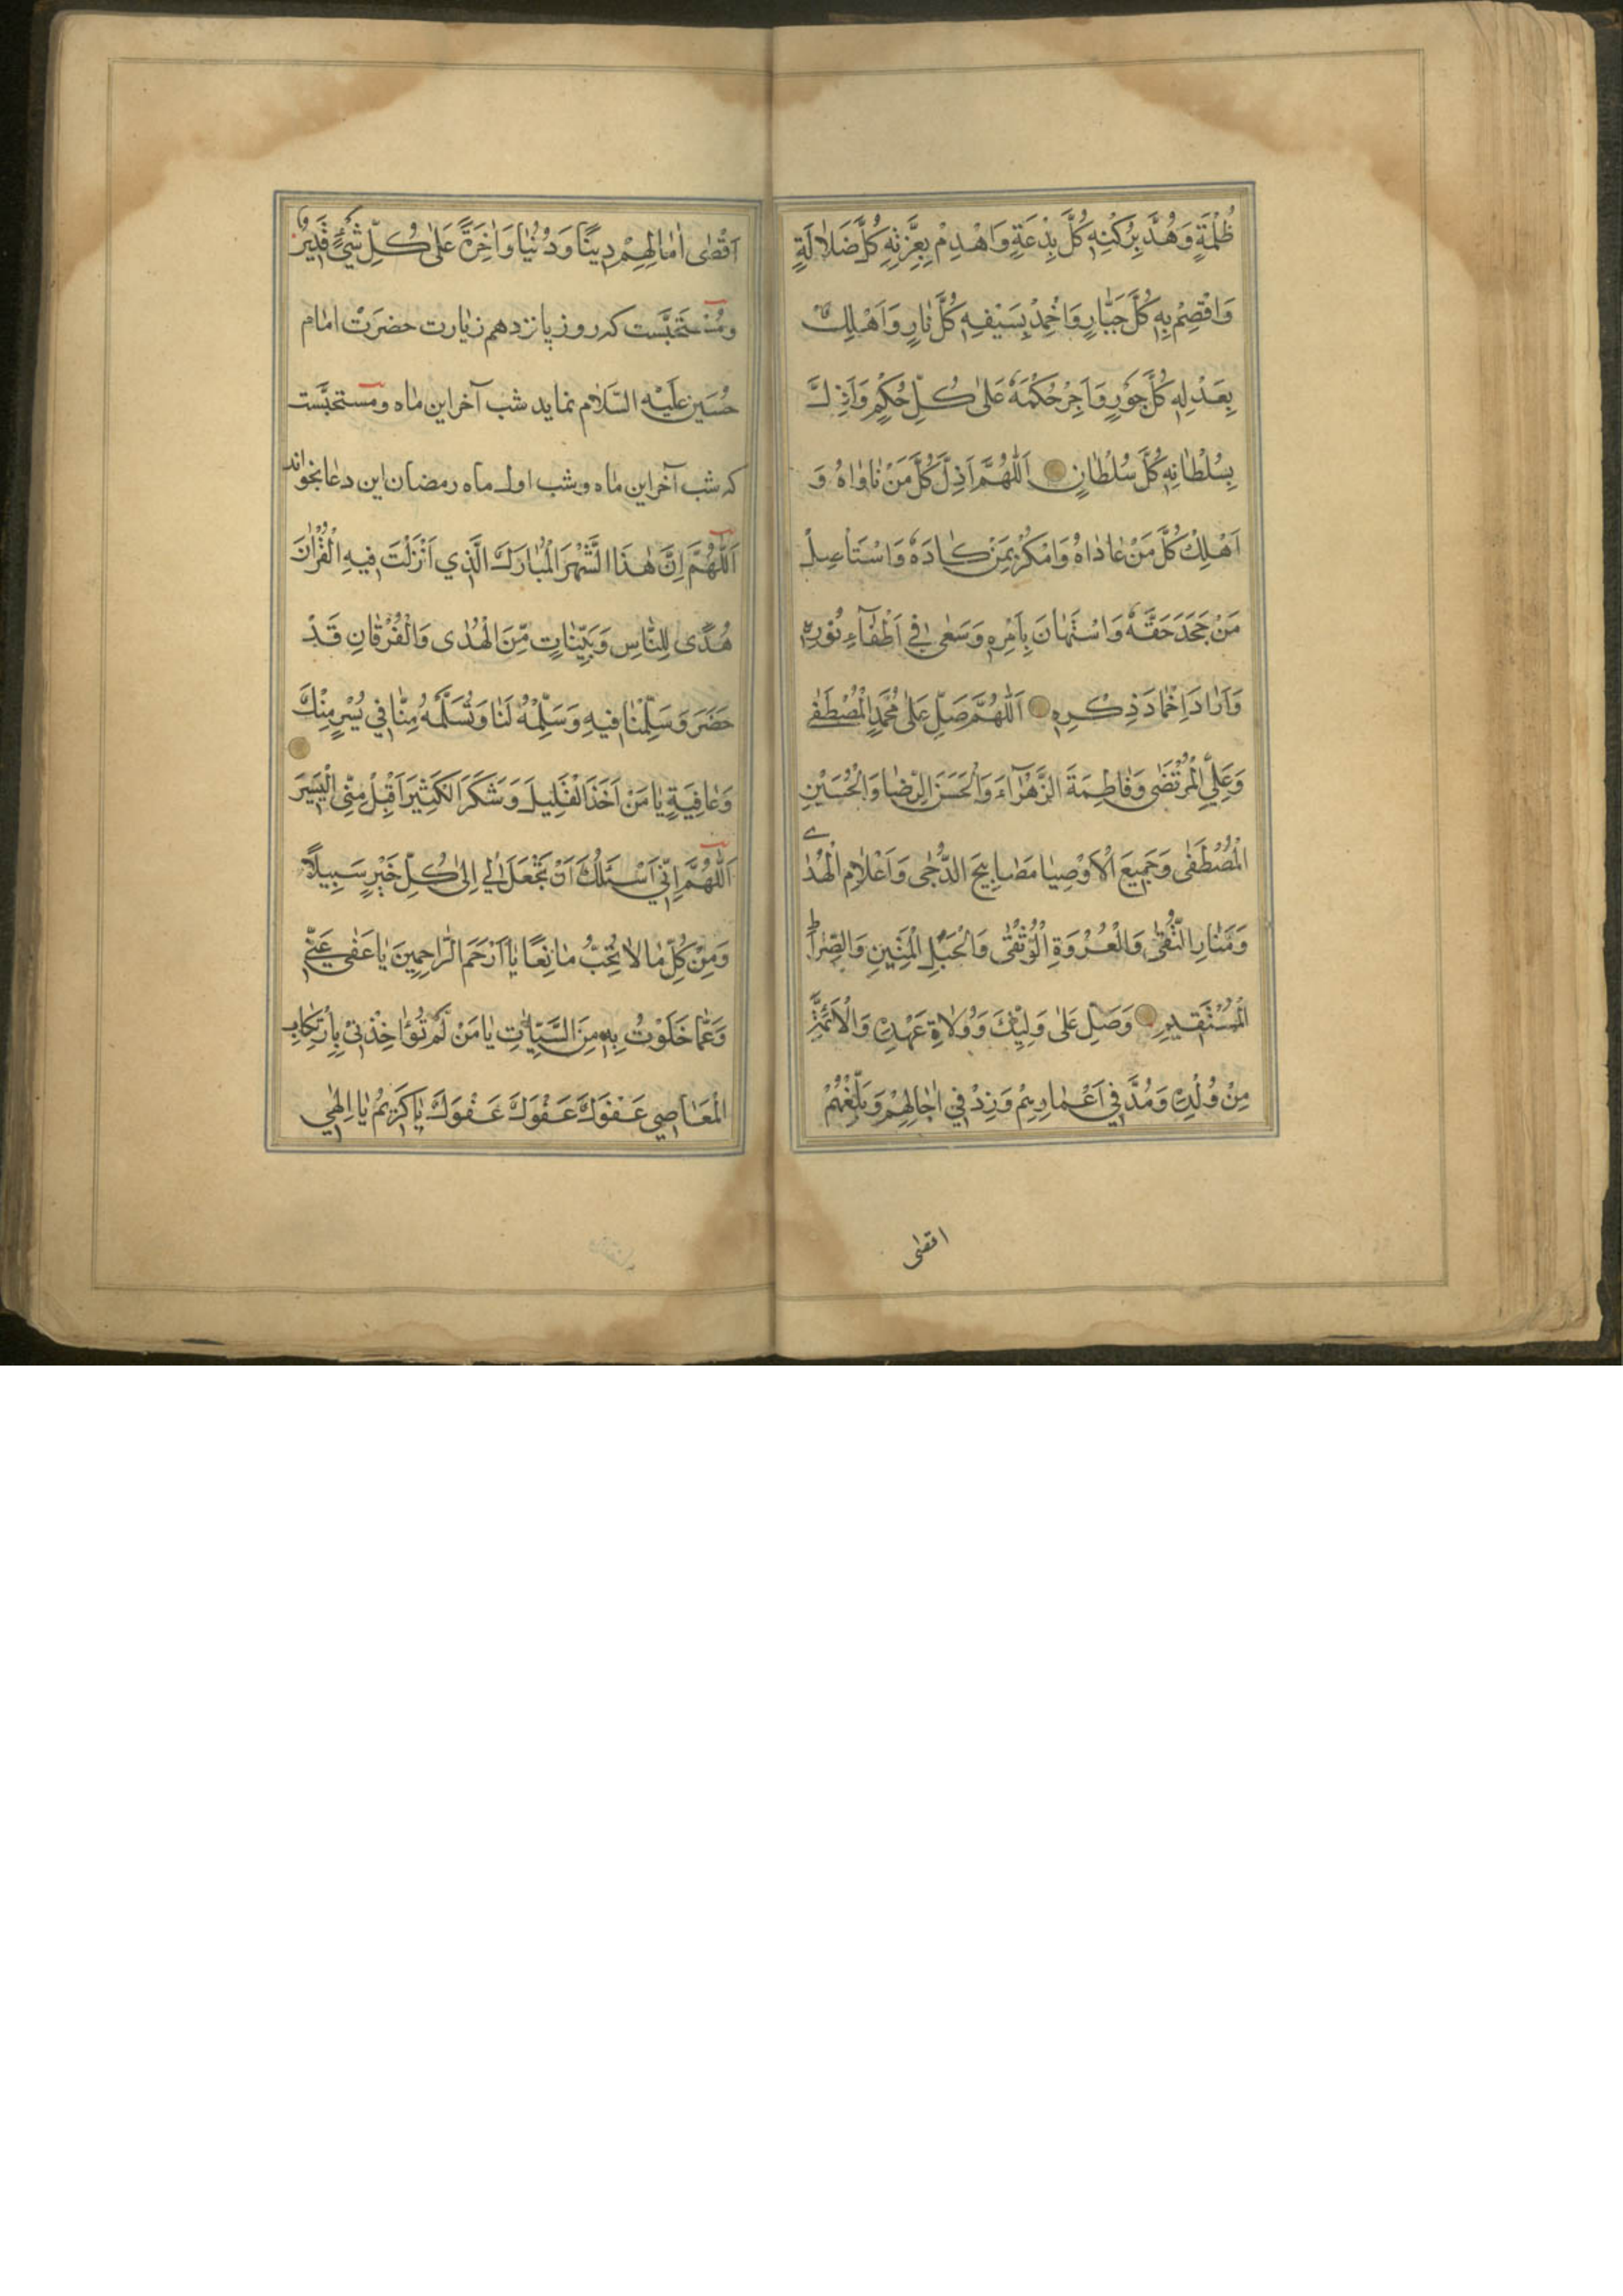 ظُلْمَةٍ وَهُدَّ بِرُكْنِهِ كُلَّ بِدْعَةٍ وَاهْدِمْ بِعِزَّتِهِ كُلَّ ضَلَالَةٍ
وَاقْصِمْ بِهِ كُلَّ جَبَّارٍ وَاَخْمِدْ بِسَيْفِهِ كُلَّ نَارٍ وَاَهْلِكْ
بِعَدْلِهِ كُلَّ جَوْرٍ وَاَجِرْ حُكْمَهُ عَلىٰ كُلِّ حُكْمٍ وَاَذِلَّ
بِسُلْطَانِهِ كُلَّ سُلْطَانٍ اَللّٰهُمَّ اَذِلَّ كُلَّ مَنْ نَاوَاهُ وَ
اَهْلِكْ كُلَّ مَنْ عَادَاهُ وَامْكُرْ بِمَنْ كَادَهُ وَاسْتَأْصِلْ
مَنْ جَحَدَ حَقَّهُ وَاسْتَهَانَ بِاَمْرِهِ وَسَعىٰ فِي اَطْفَآءِ نُورِهِ
وَاَرَادَ اِخْمَادَ ذِكْرِهِ اَللّٰهُمَّ صَلِّ عَلىٰ مُحَمَّدٍ الْمُصْطَفىٰ
وَعَلِيٍّ الْمُرْتَضىٰ وَفَاطِمَةَ الزَّهْرَآءَ وَالْحَسَنِ الرِّضَا وَالْحُسَيْنِ
الْمُصْطَفىٰ وَجَمِيعَ الْاَوْصِيَا مَصَابِيحَ الدُّجىٰ وَاَعْلَامِ الْهُدٰى
وَمَنَارِ التُّقىٰ وَالْعُرْوَةِ الْوُثْقىٰ وَالْحَبْلِ الْمَتِينِ وَالصِّرَاطِ
الْمُسْتَقِيمِ وَصَلِّ عَلىٰ وَلِيِّكَ وَوُلَاةِ عَهْدِهِ وَالْاَئِمَّةِ
مِنْ وُلْدِهِ وَمُدَّ فِي اَعْمَارِهِمْ وَزِدْ فِي اٰجَالِهِمْ وَبَلِّغْهُمْ
اقصٰى
اَقْصٰى اٰمَالِهِمْ دِينًا وَدُنْيَا وَاٰخِرَةً عَلىٰ كُلِّ شَيْءٍ قَدِيرٌ
ومُسْتَحَبَّست كه روز پانزدهم زيارت حضرَتْ امام
حُسَين عَلَيْهِ السَّلَام نمايد شب آخر اين ماه ومستحبَّست
كه شب آخر اين ماه و شب اول ماه رمضان اين دعا بخواند
اَللّٰهُمَّ اِنَّ هٰذَا الشَّهْرَ الْمُبَارَكَ الَّذِي اَنْزَلْتَ فِيهِ الْقُرْاٰنَ
هُدًى لِلنَّاسِ وَبَيِّنَاتٍ مِّنَ الْهُدٰى وَالْفُرْقَانِ قَدْ
حَضَرَ وَسَلِّمْنَا فِيهِ وَسَلِّمْهُ لَنَا وَتُسَلِّمَهُ مِنَّا فِي يُسْرٍ مِنْكَ
وَعَافِيَةٍ يَا مَنْ اَخَذَ الْقَلِيلَ وَشَكَرَ الْكَثِيرَ اَقْبِلْ مِنِّي الْيَسِيرَ
اَللّٰهُمَّ اِنِّي اَسْئَلُكَ اَنْ تَجْعَلَ لِي اِلىٰ كُلِّ خَيْرٍ سَبِيلًا
وَمِنْ كُلِّ مَا لَا تُحِبُّ مَانِعًا يَا اَرْحَمَ الرَّاحِمِينَ يَا عَفٰى عَنِّي
وَعَمَّا خَلَوْتُ بِهِ مِنَ السَّيِّئَاتِ يَا مَنْ لَمْ تُؤَاخِذْنِي بِارْتِكَابِ
الْمَعَاصِي عَفْوَكَ عَفْوَكَ عَفْوَكَ يَا كَرِيمُ يَا اِلٰهِي